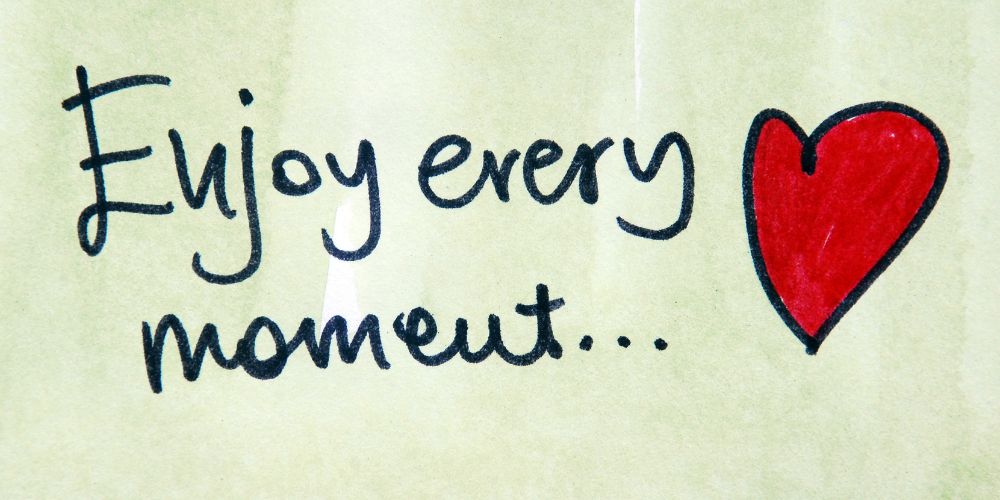 Enjoy every
moment...